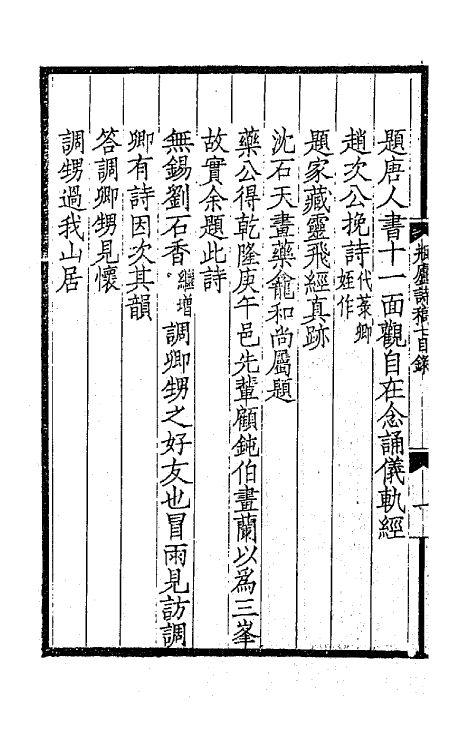 瓶廬詩稿七目錄
一
題唐人書十一面觀自在念誦儀軌經
趙次公挽詩代菉卿姪作
題家藏靈飛經真跡
沈石天畫藥龕和尚屬題
藥公得乾隆庚午邑先輩顧鈍伯畫蘭以為三峯
故實余題此詩
無錫劉石香繼增調卿甥之好友也冒雨見訪調
卿有詩因次其韻
答調卿甥見懷
調甥過我山居